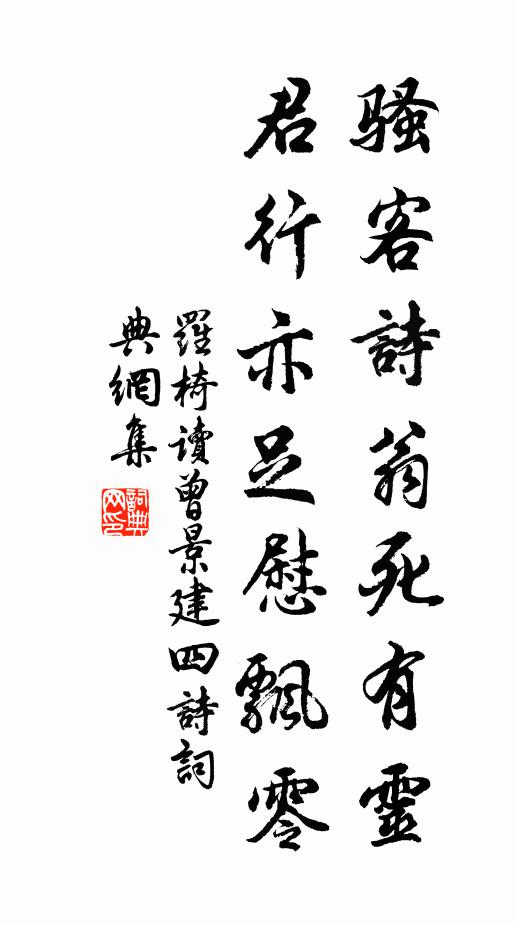 騷客詩翁死有靈
君行亦足慰飄零
羅椅讀曾景建四詩詞
典網集
詞典网印